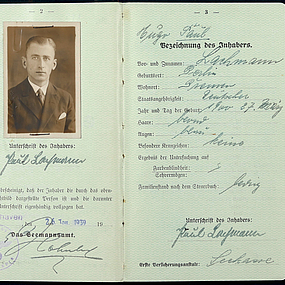 - 2 -
Unterschrift des Inhabers:
Paul
bescheinigt, daß der Inhaber die durch das oben-
dargestellte Person ist und die darunter
Unterschrift eigenhändig vollzogen hat.
haven
26 Jan 1939
Das Seemannsamt.
- 3 -
Paul
Bezeichnung des Inhabers.
Vor- und Zunamen:
Geburtsort: Berlin
Wohnort: Bremen
Staatsangehörigkeit:
Jahr und Tag der Geburt: 1907 27.
Haare: blond
Augen: blau
Besondere Kennzeichen: keine
Ergebnis der Untersuchung auf
Farbenblindheit:
Sehvermögen:
Familienstand nach dem Steuerbuch: ledig
Unterschrift des Inhabers:
Paul
Erste Versicherungsanstalt: Seekasse